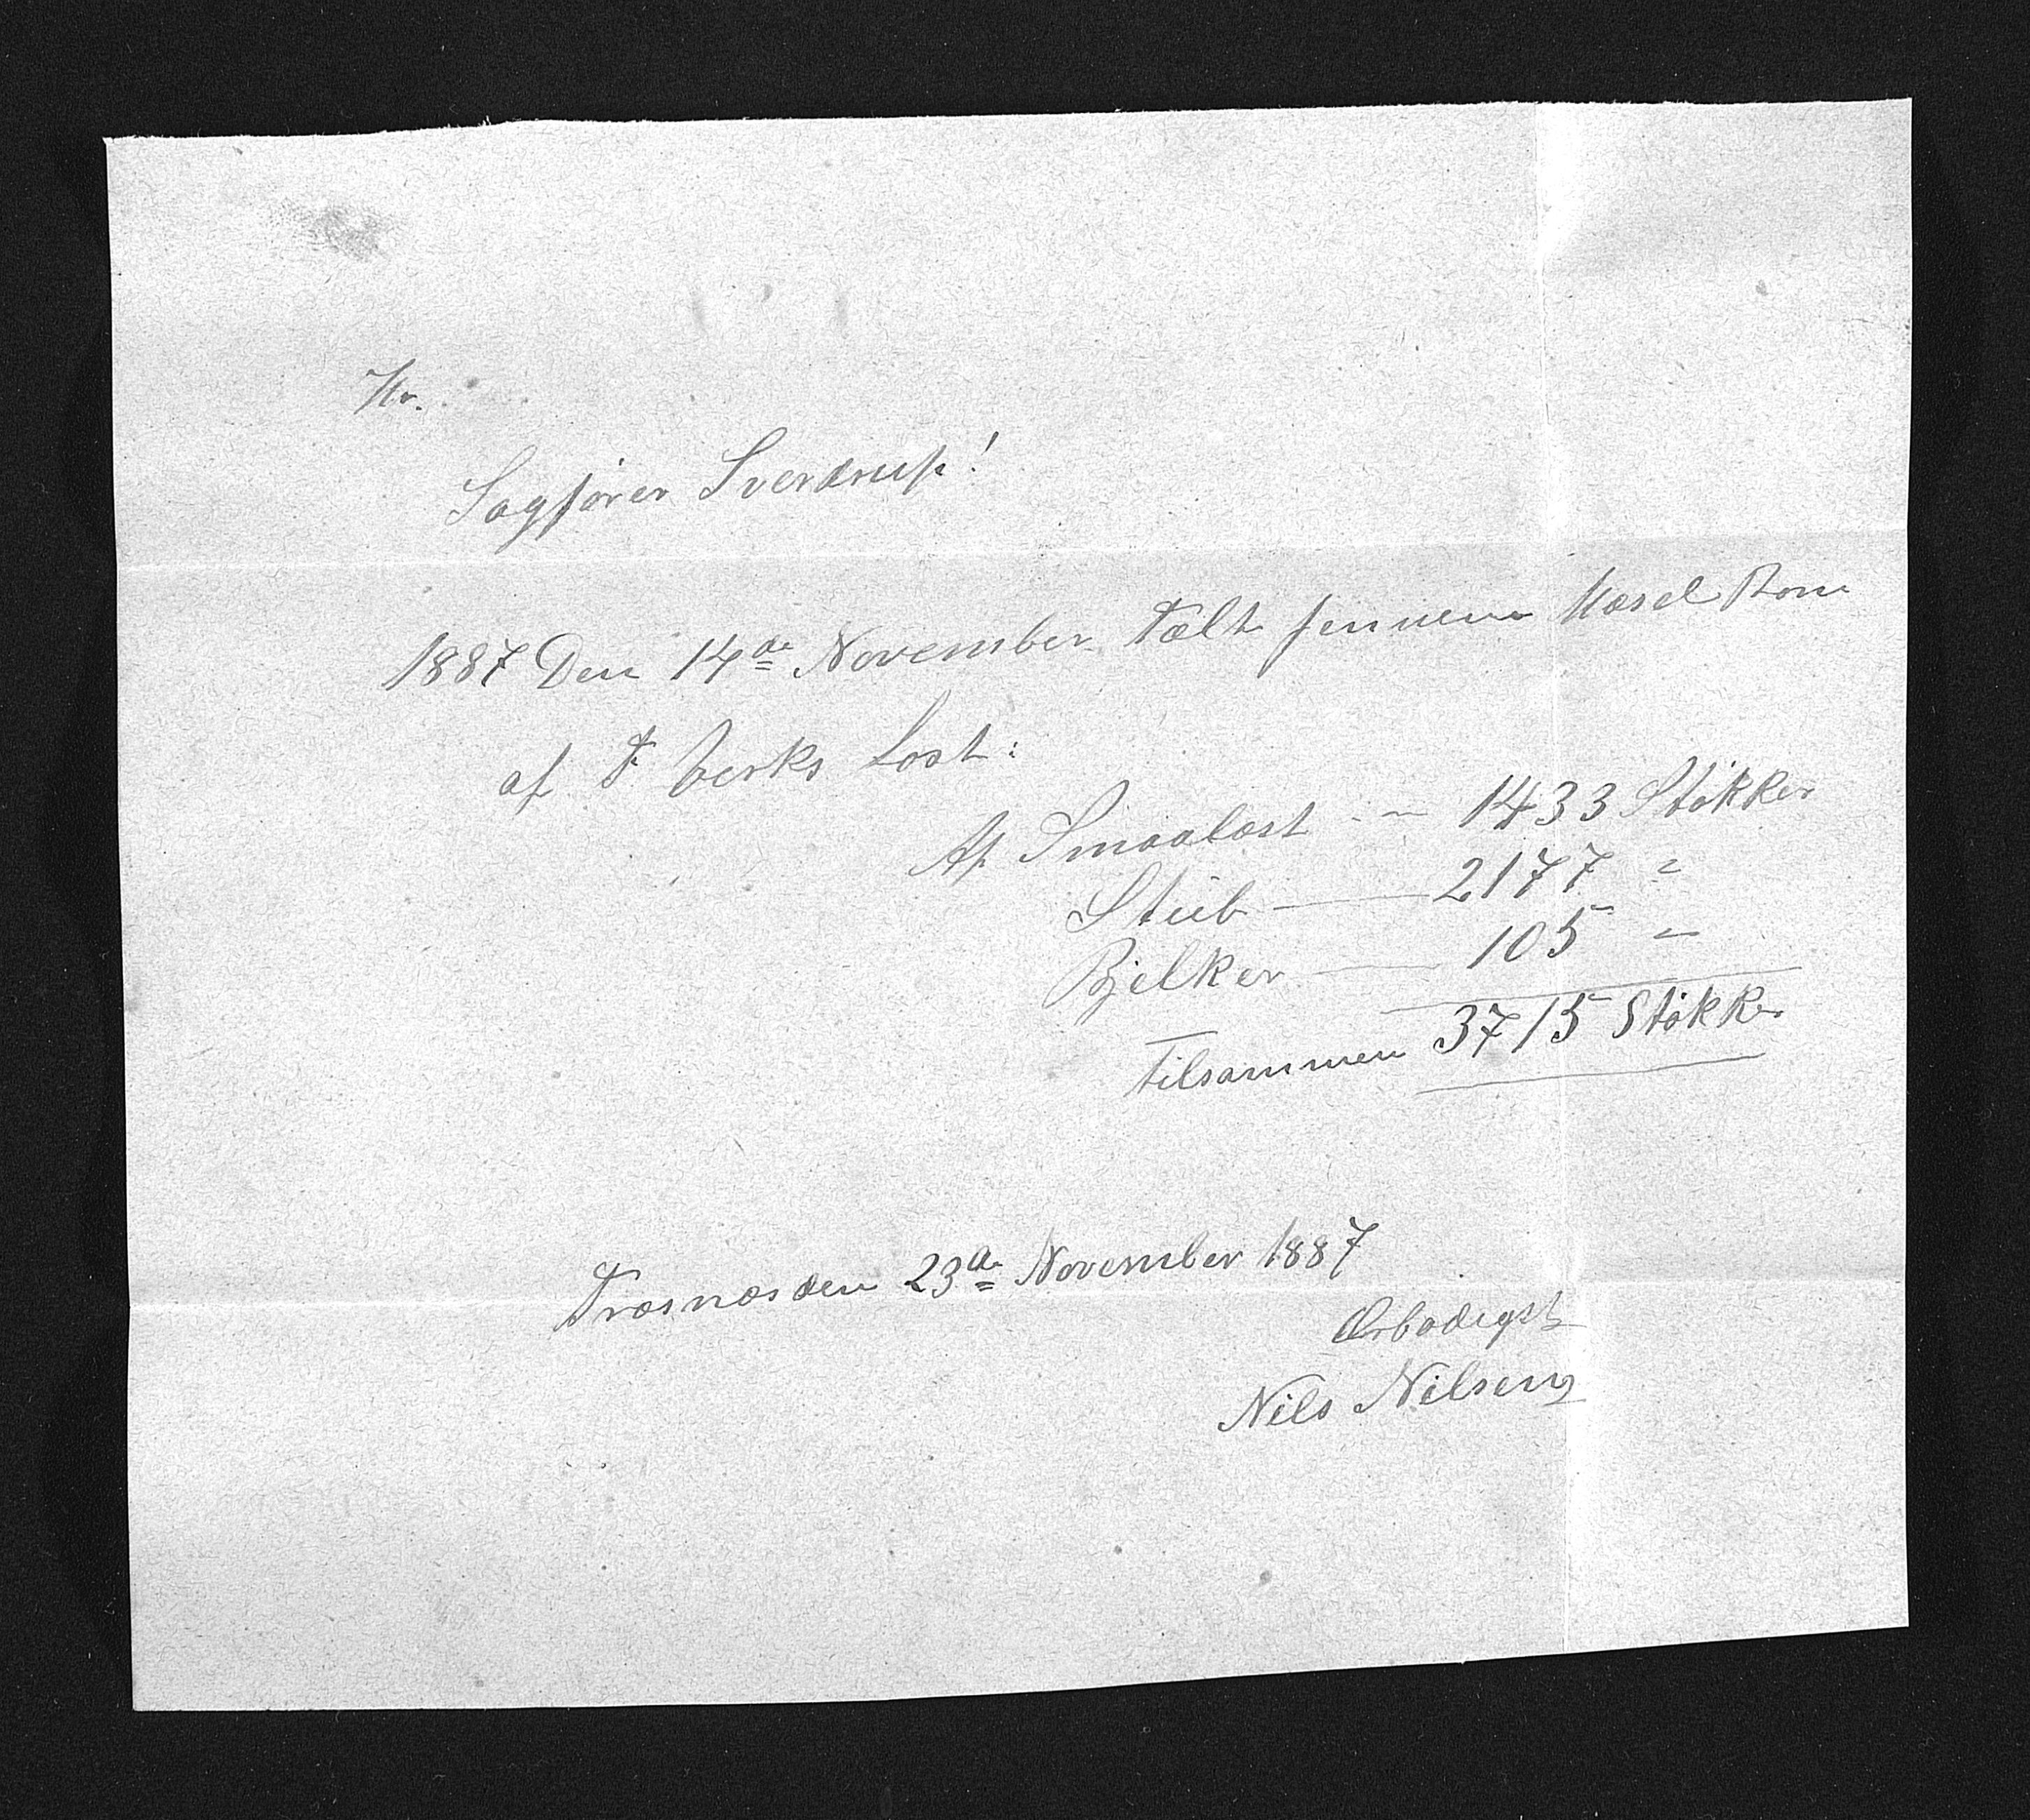 Hr.
Sagfører Sverdrup!
1887 Den 14de November Tælt jennem Mæsel Bom
af F. Verks Last:
Af Smaalast - - 1433 Støkker
Stüb - 2177 "
Bjelker - 105 "
Tilsammen 3715 Støkker
Træsnæs den 23de November 1887
Ærbødigst
Nils Nilsen